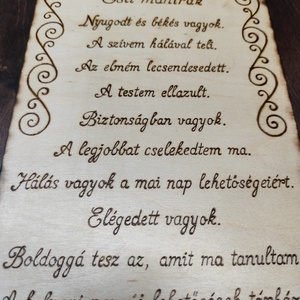 Esti mantrák
Nyugodt és békés vagyok.
A szívem hálával teli.
Az elmém lecsendesedett.
A testem ellazult.
Biztonságban vagyok.
A legjobbat cselekedtem ma.
Hálás vagyok a mai nap lehetőségeiért.
Elégedett vagyok.
Boldoggá tesz az, amit ma tanultam